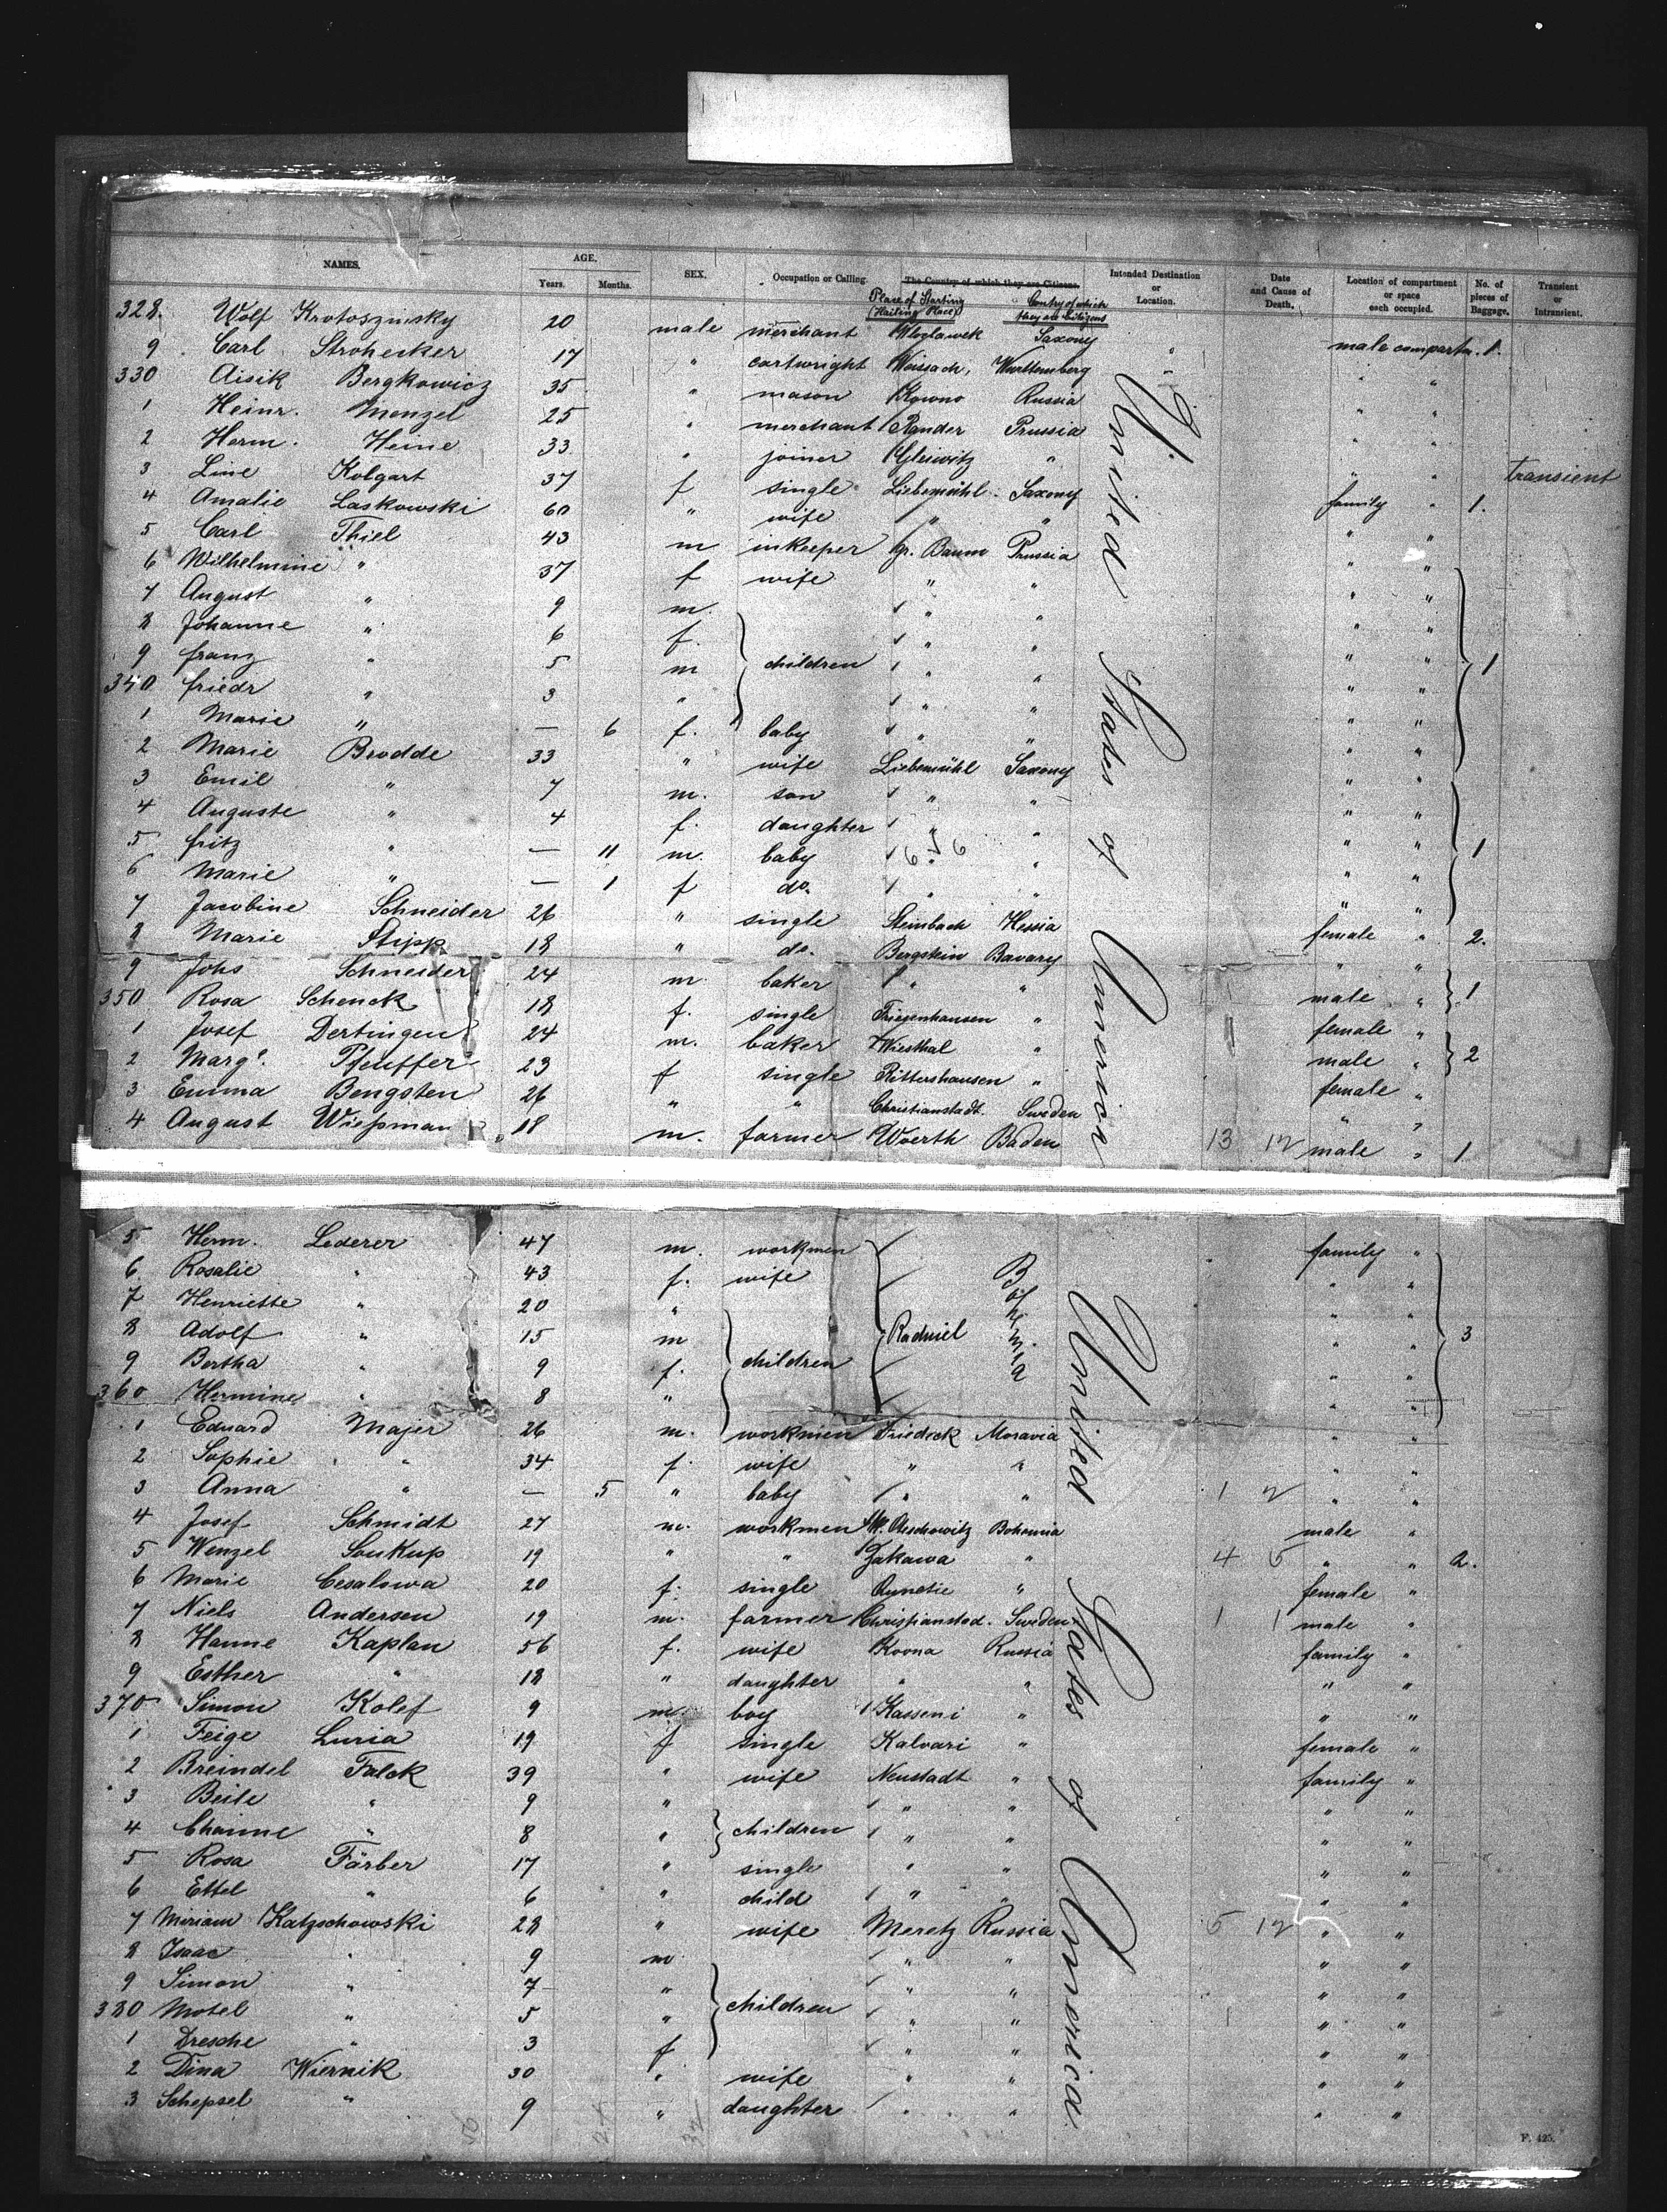 NAMES. AGE. SEX. Occupation or Calling. The Country of which they are Citizens. Intended Destination or Location. Date and Cause of Death. Location of compartment or space each occupied. No. of pieces of Baggage. Transient or Intransient.
Years. Months. Place of Starting (Hailing Place) Contry of which they are Citizens
328. Wolf Krotoszinsky 20 male merchant Wloglawek Saxony " male compartm. 1.
9 Carl Strohecker 17 " cartwright Weissach, Württemberg " " "
330 Aisik Bergkowicz 35 " mason Kowno Russia " "
1 Heinr. Menzel 25 " merchant Rander Prussia " "
2 Herm. Heine 33 " joiner Gleiwitz " " " transient
3 Line Kolgart 37 f single Liebemühl Saxony family " 1.
4 Amalie Laskowski 60 " wife " " " "
5 Carl Thiel 43 m inkeeper Gr. Baum Prussia " "
6 Wilhelmine " 37 f wife " " " "
7 August " 9 m. " " " "
8 Johanne " 6 f. " " " "
9 franz " 5 m children " " " " 1
340 friedr " 3 " " " " "
1 Marie " — 6 f. baby " " " "
2 Marie Brodde 33 " wife Liebemühl Saxony " "
3 Emil " 7 m. son " " " "
4 Auguste " 4 f. daughter " " " "
5 fritz " — 11 m. baby " " " " 1
6 Marie " — 1 f do. " " " "
7 Jacobine Schneider 26 " single Steinbach Hessia female " 2.
8 Marie Stipp 18 " do. Bergstein Bavary " "
9 Johs Schneider 24 m. baker " " male " 1
350 Rosa Schenck 18 f. single Friesenhausen " female "
1 Josef Dertingen 24 m. baker Wiesthal " male " 2
2 Marg. Pfeuffer 23 f single Rittershausen " female "
3 Emma Bengsten 26 " " Christianstadt Sweden " "
4 August Wiessman 18 m. farmer Woerth Baden 13 12 male " 1
United States of America
5 Herm. Lederer 47 m. workmen family "
6 Rosalie " 43 f. wife " "
7 Henriette " 20 " " "
8 Adolf " 15 m children Radniel " " 3
9 Bertha " 9 f. " "
360 Hermine " 8 " " "
1 Eduard Majer 26 m. workmen Friedeck Moravia " "
2 Sophie " 34 f. wife " " " "
3 Anna " — 5 " baby " " 1 2 " "
4 Josef Schmidt 27 m. workmen Bohemia male "
5 Wenzel Soukup 19 " " Zakawa " 4 5 " " 2.
6 Marie Cesalowa 20 f. single " female "
7 Niels Andersen 19 m. farmer Christianstad. Sweden 1 1 male "
8 Hanne Kaplan 56 f. wife Kovna Russia family "
9 Esther " 18 " daughter " " " "
370 Simon Kolef 9 m. boy Kasseni " " "
1 Feige Luria 19 f single Kalvari " female "
2 Breindel Falck 39 " wife Neustadt " family "
3 Beile " 9 " " " " "
4 Chanine " 8 " children " " " "
5 Rosa Färber 17 " single " " " "
6 Ettel " 6 " child " " " "
7 Miriam Katzschowski 28 " wife Meretz Russia 5 12 " "
8 Isaac " 9 m " " " "
9 Simon " 7 " " " " "
380 Motel " 5 " children " " " "
1 Dresche " 3 f " " " "
2 Dina Wiernik 30 " wife " " " "
3 Schepsel " 9 " daughter " " " "
United States of America
F. 425.